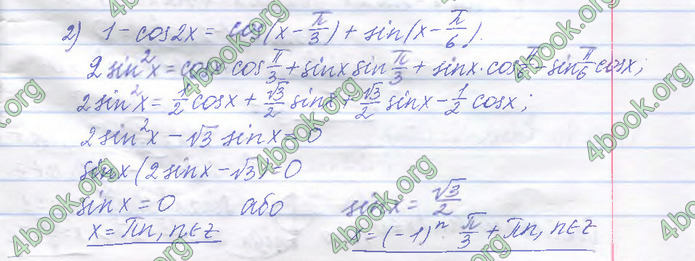 2) 1 - cos2x = cos(x - π/3) + sin(x - π/6).
2sin²x = cosx cos π/3 + sinx sin π/3 + sinx · cos π/6 - sin π/6 cosx;
2sin²x = 1/2 cosx + √3/2 sinx + √3/2 sinx - 1/2 cosx;
2sin²x - √3 sinx = 0
sinx(2sinx - √3) = 0
sinx = 0 або sinx = √3/2
x = πn, n∈Z x = (-1)ⁿ · π/3 + πn, n∈Z
4book.org